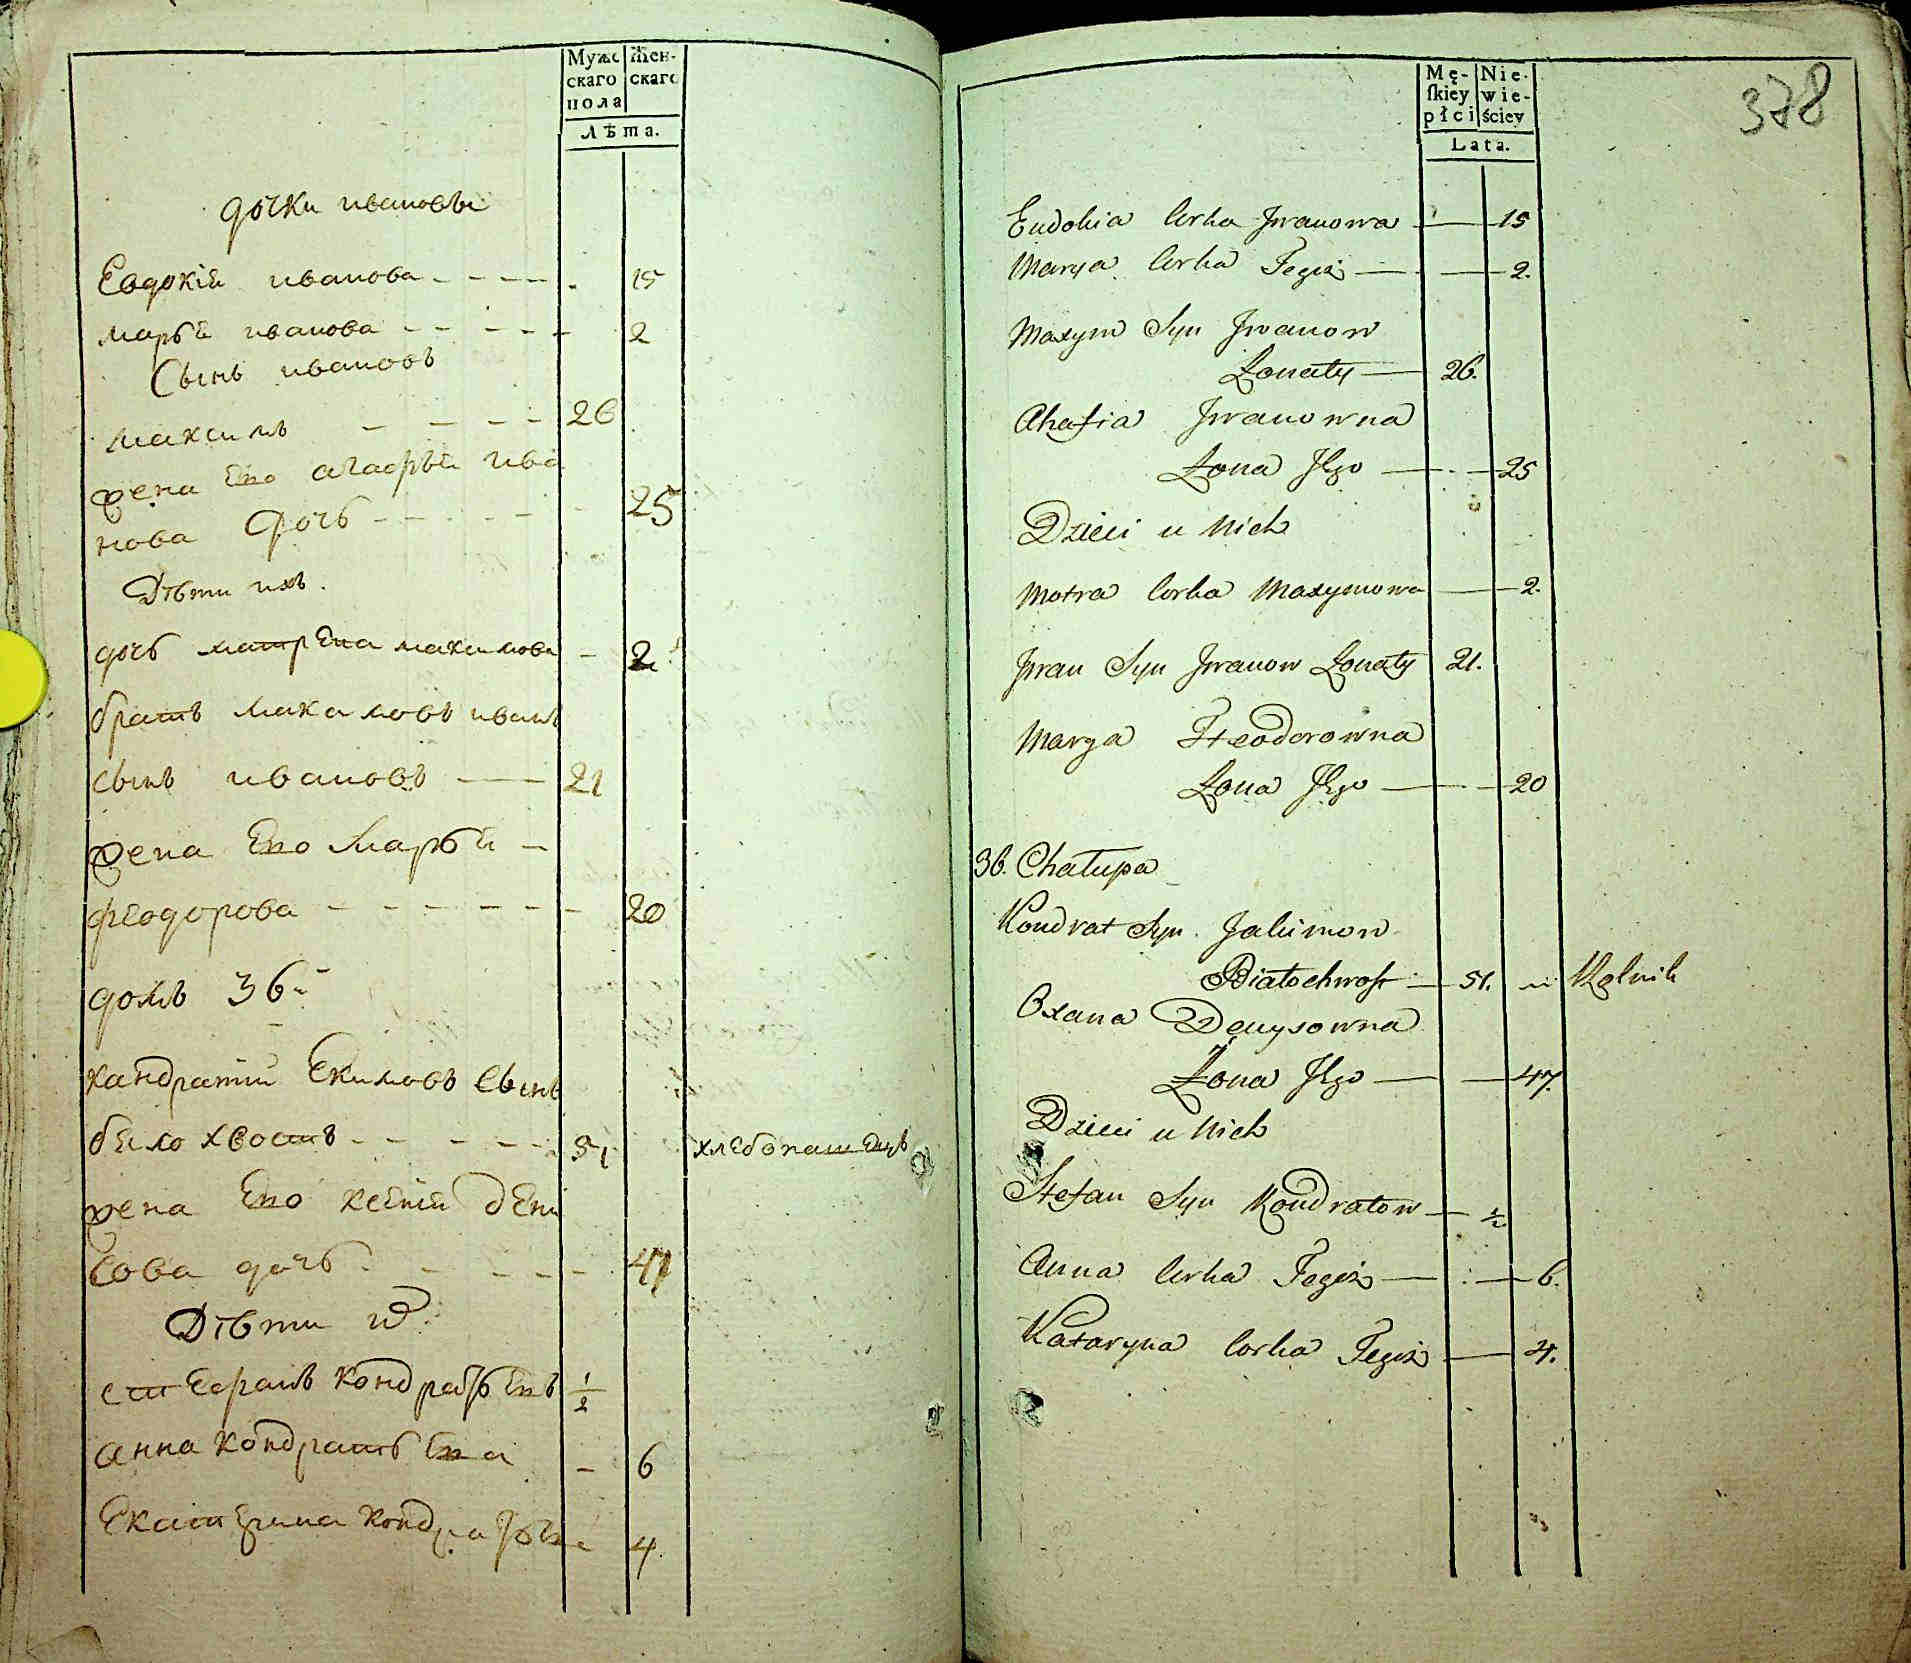 Мужс
скаго
пола
Жен-
скаго
Лѣта.
дочки ивановы
Евдокія иванова - - - - 15
марья иванова - - - - - 2
Сынъ ивановъ
максимъ - - - - 26
жена Его агафья ива
нова дочь - - - - - 25
Дѣти ихъ.
дочь матрЕна максимова - 2
братъ максимовъ иванъ
сынъ ивановъ — 21
жена Его Марья -
феодорова - - - - - - 20
домъ 36й
кандратий Екимовъ Сынъ
бело хвостъ - - - - - 51 хлЕбопашЕцъ
жена Его ксения дЕни
сова дочь - - - - - 47
Дѣти их
стЕфанъ кондратьЕвъ 1/2
анна кондратьЕва - 6
Екатерина кондратьева 4
378
Mę-
skiey
płci
Nie-
wie-
ściey
Lata.
Eudokia Corka Jwanowa — 15
Marya Corka Tegoż — 2.
Maxym Syn Jwanow
Żonaty — 26.
Ahafia Jwanowna
Żona Jego — 25
Dzieci u Nich
Motra Corka Maxymowa — 2.
Jwan Syn Jwanow Żonaty 21.
Marya Fteodorowna
Żona Jego — 20
36. Chałupa
Kondrat Syn Jakimow
Białochwost — 51. Rolnik
Oxana Denysowna
Żona Jego — 47.
Dzieci u Nich
Stefan Syn Kondratow — 1/2
Anna Corka Tegoż — 6.
Kataryna Corka Tegoż — 4.